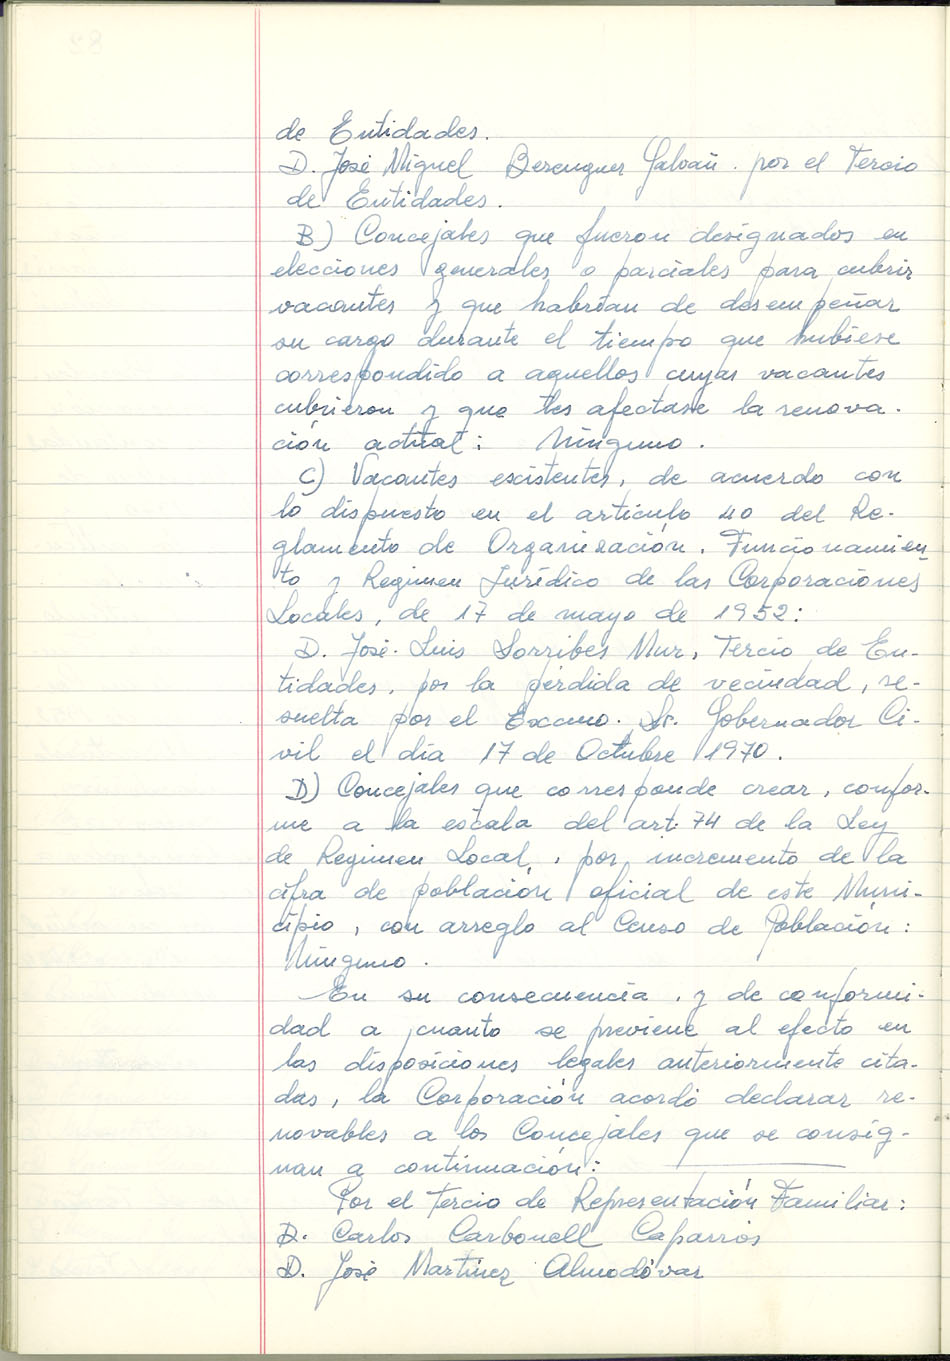 de Entidades.
D. José Miguel Berenguer Galvañ. por el Tercio
de Entidades.
B) Concejales que fueron designados en
elecciones generales o parciales para cubrir
vacantes y que habrían de desempeñar
su cargo durante el tiempo que hubiese
correspondido a aquellos cuyas vacantes
cubrieron y que les afectase la renova-
ción actual: Ninguno.
C) Vacantes existentes, de acuerdo con
lo dispuesto en el artículo 40 del Re-
glamento de Organización, Funcionamien
to y Regimen Jurídico de las Corporaciones
Locales, de 17 de mayo de 1952:
D. José-Luis Sorribes Mur, Tercio de En-
tidades, por la pérdida de vecindad, re-
suelta por el Excmo. Sr. Gobernador Ci-
vil el día 17 de Octubre 1970.
D) Concejales que corresponde crear, confor-
me a la escala del art. 74 de la Ley
de Regimen Local, por incremento de la
cifra de población oficial de este Muni-
cipio, con arreglo al Censo de Población:
Ninguno.
En su consecuencia, y de conformi-
dad a cuanto se previene al efecto en
las disposiciones legales anteriormente cita-
das, la Corporación acordó declarar re-
novables a los Concejales que se consig-
nan a continuación:
Por el Tercio de Representación Familiar:
D. Carlos Carbonell Caparrós
D. José Martínez Almodóvar